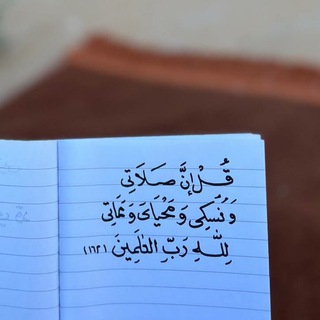 قُلْ إِنَّ صَلَاتِى
وَنُسُكِى وَمَحْيَاىَ وَمَمَاتِى
لِلَّهِ رَبِّ الْعَٰلَمِينَ (١٦٢)